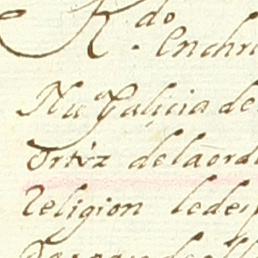 R.do
en chri
Nu Galicia de
Ortiz delaord
Religion ledes